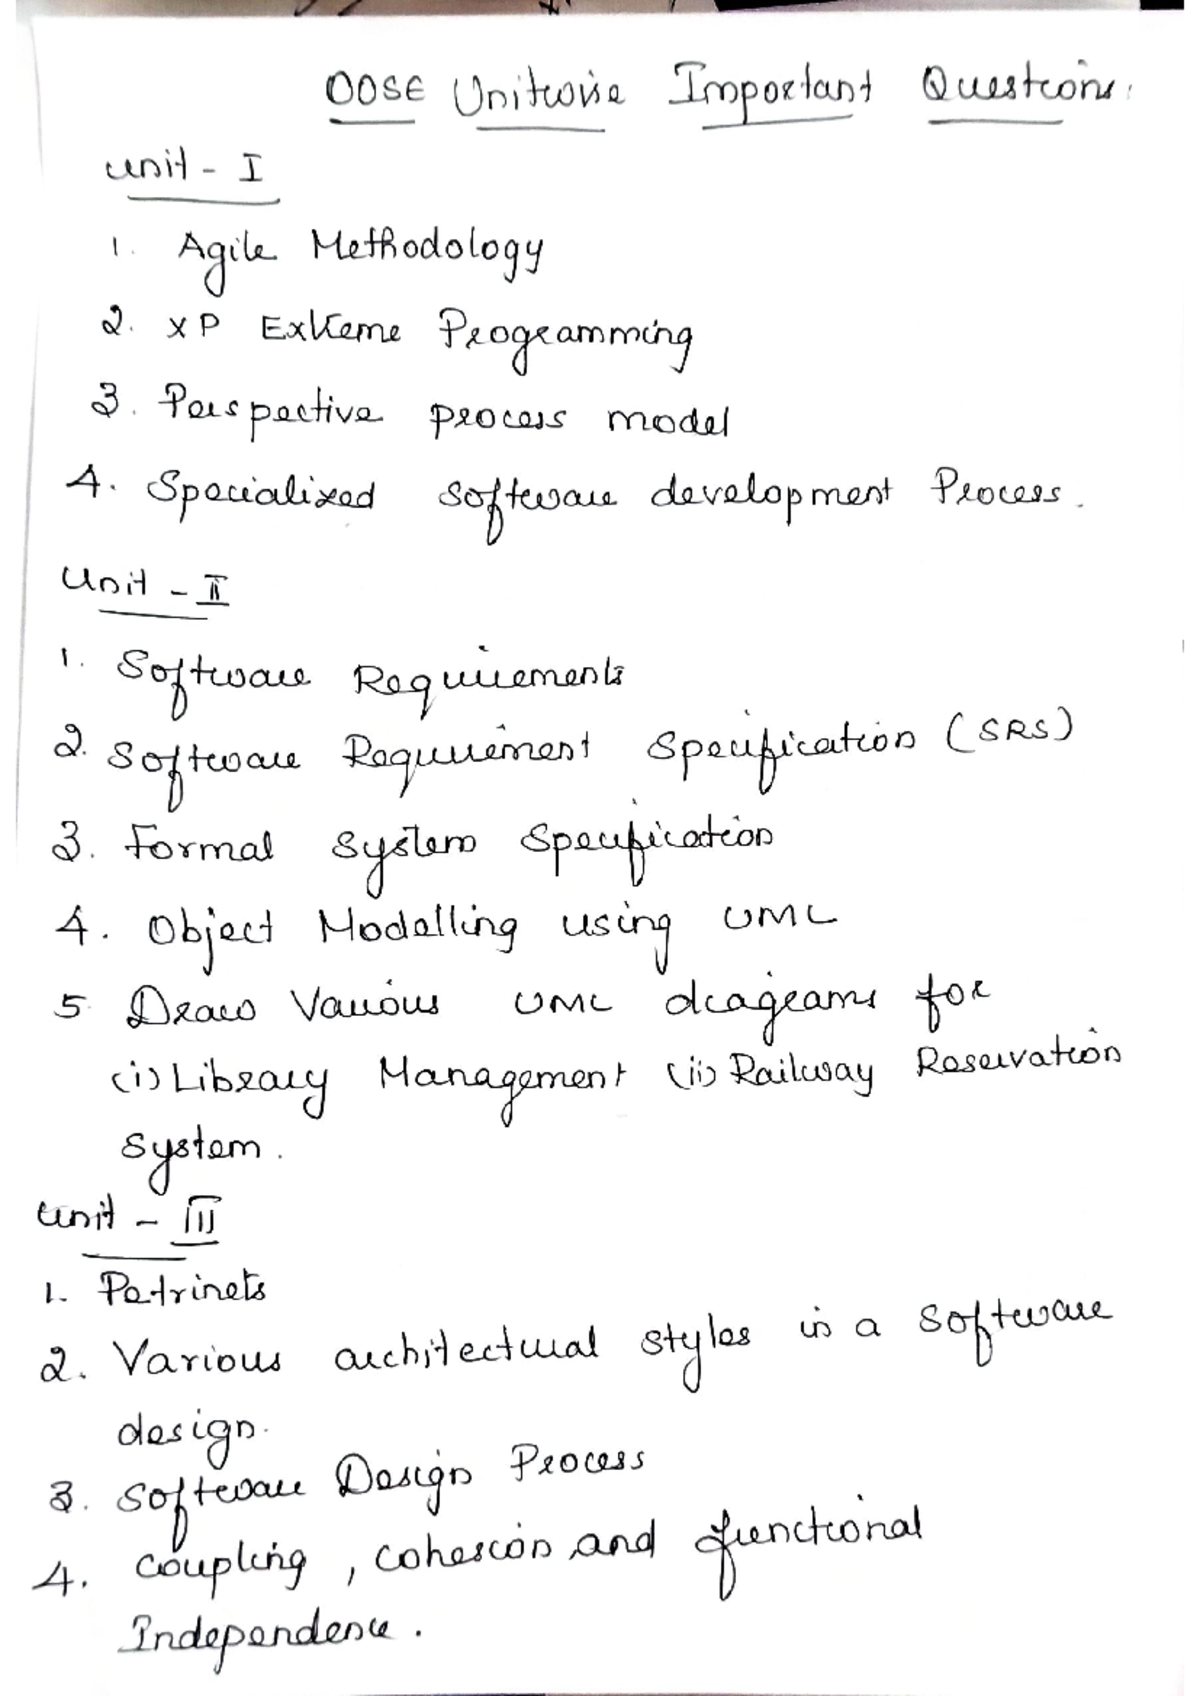 OOSE Unitwise Important Questions.
Unit - I
1. Agile Methodology
2. XP Extreme Programming
3. Perspective process model
4. Specialized software development Process.
Unit - II
1. Software Requirements
2. Software Requirement Specification (SRS)
3. Formal System Specification
4. Object Modelling using UML
5. Draw Various UML diagrams for
(i) Library Management (ii) Railway Reservation
System.
Unit - III
1. Petrinets
2. Various architectural styles in a software
design.
3. Software Design Process
4. Coupling, cohesion and functional
Independence.